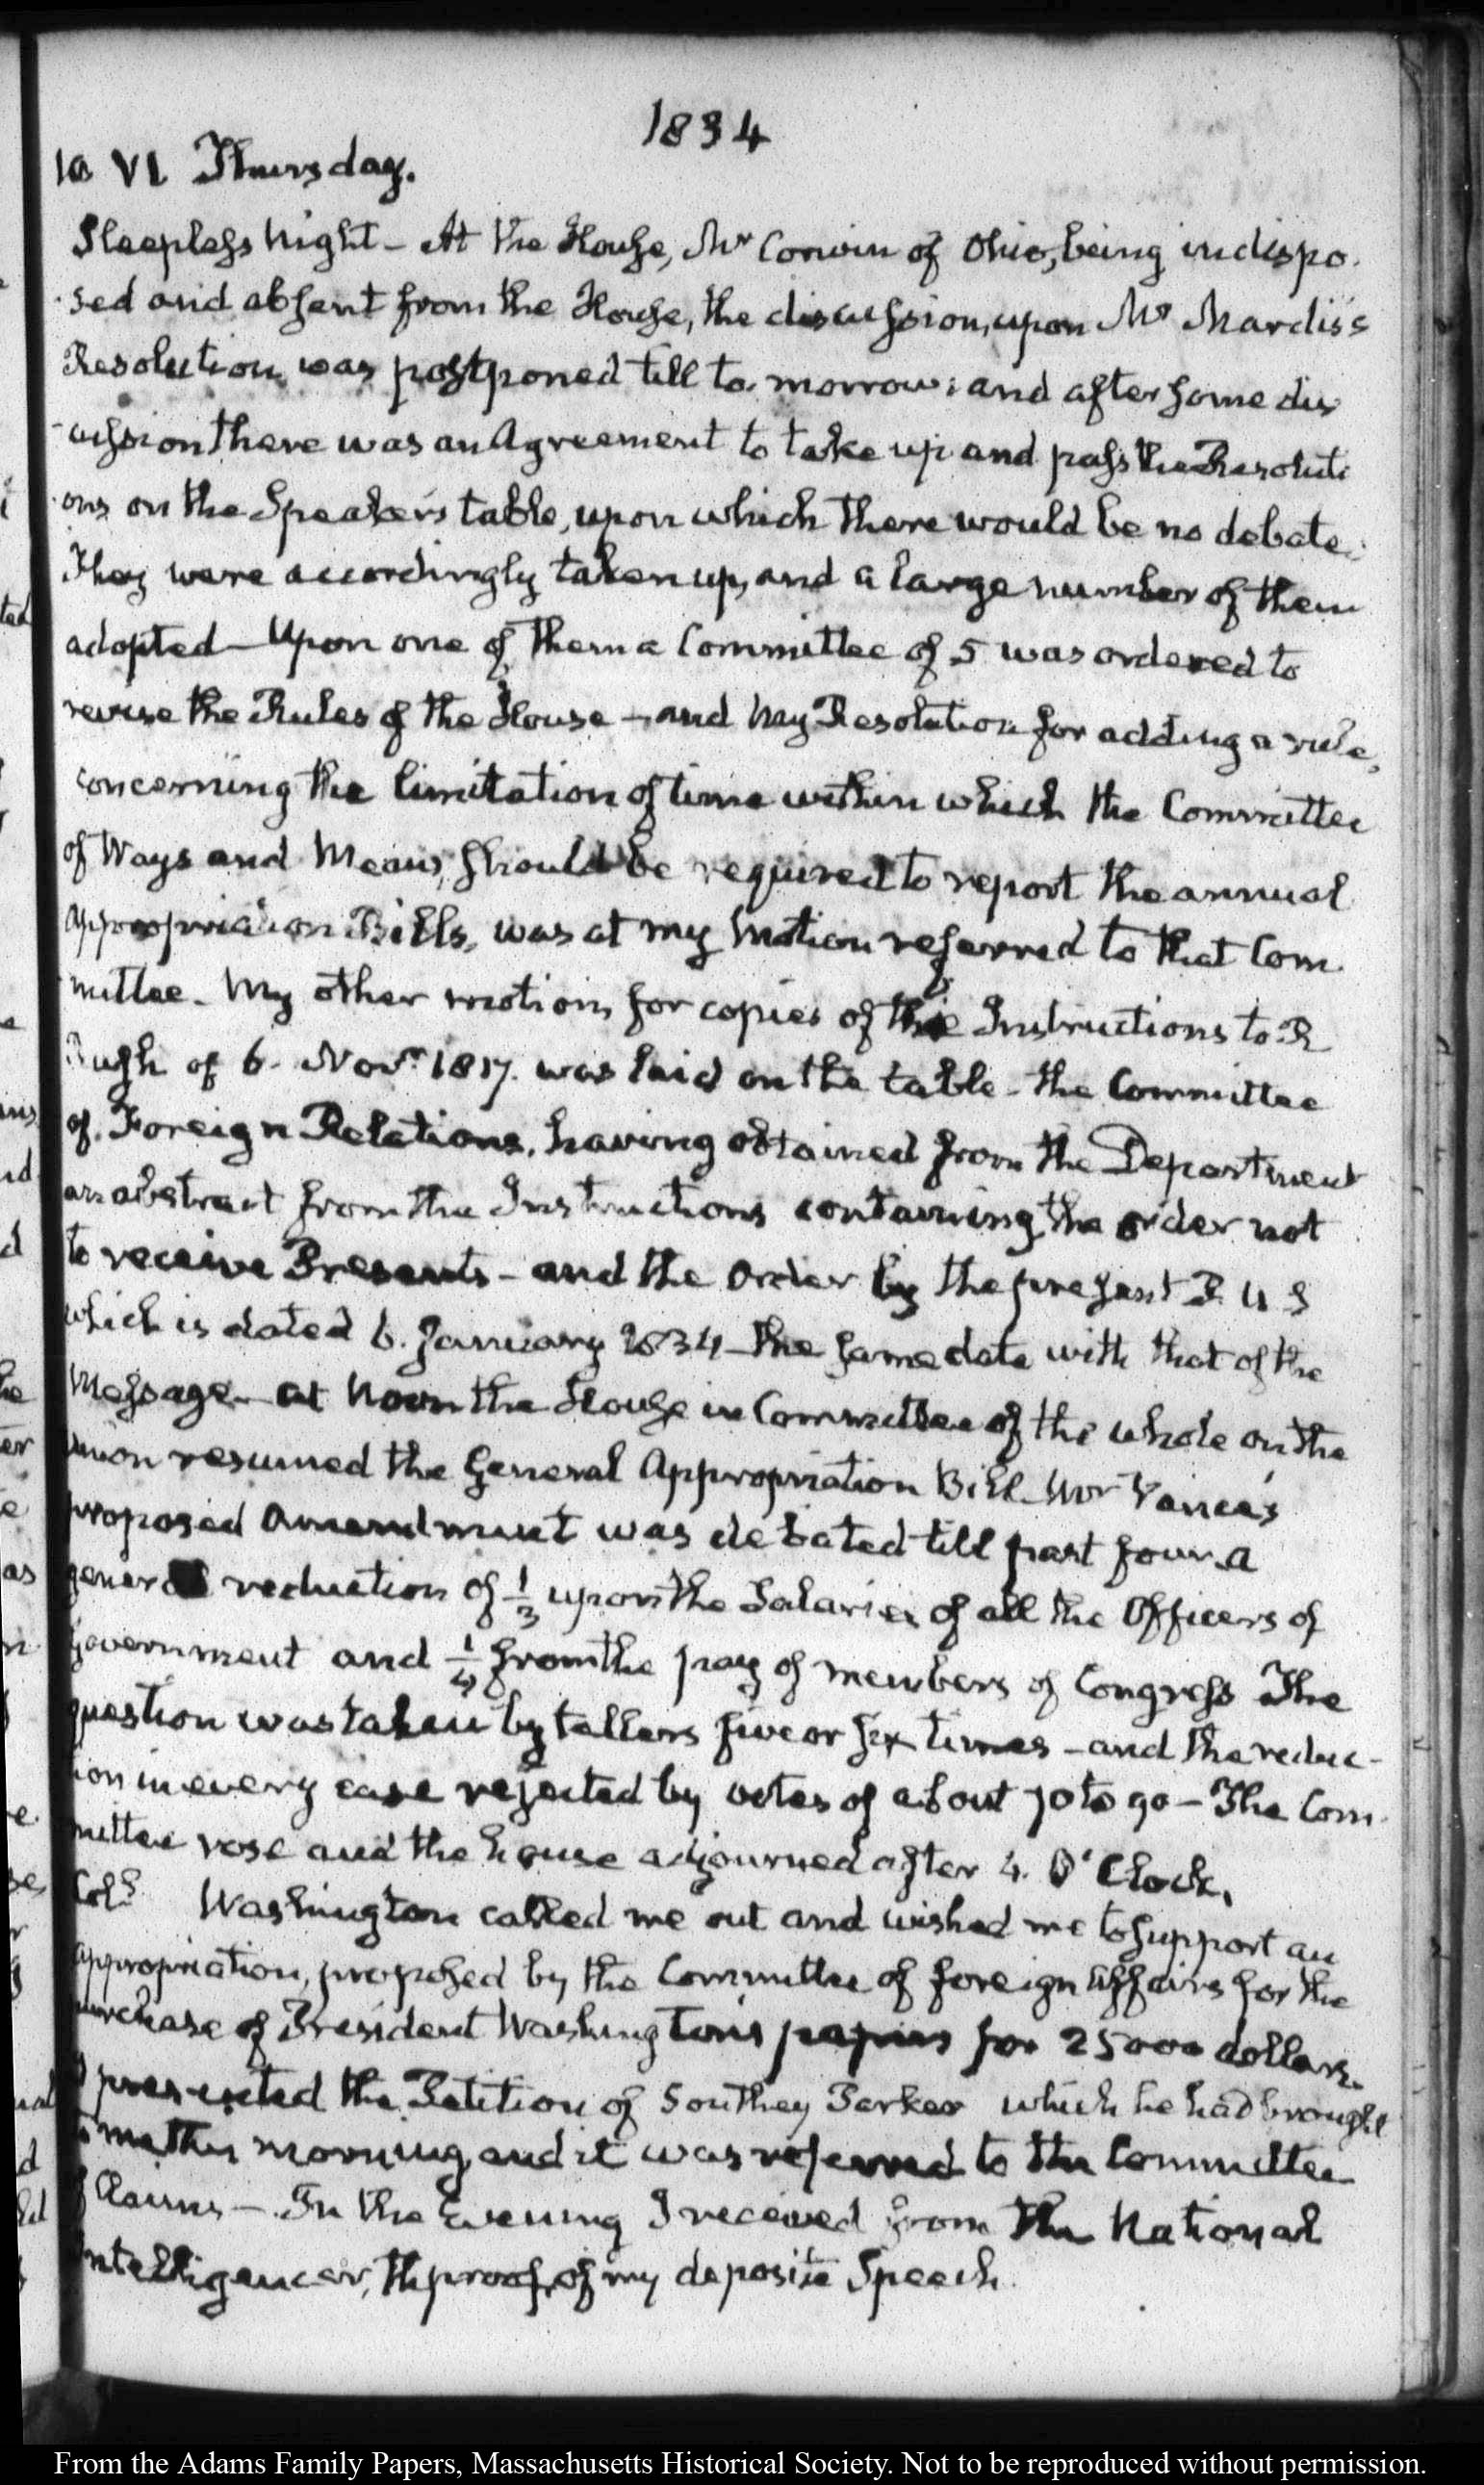 1834
10 VI. Thursday.
Sleepless Night - At the House, Mr Corwin of Ohio, being indispo-
sed and absent from the House, the discussion, upon Mr Mardis's
Resolution was postponed till to-morrow: and after some dis
-cussion there was an Agreement to take up and pass the Resoluti
-ons on the Speaker's table, upon which there would be no debate.
They were accordingly taken up, and a large number of them
adopted - Upon one of them a Committee of 5 was ordered to
revise the Rules of the House - and my Resolution for adding a rule,
concerning the limitation of time within which the Committee
of Ways and Means, should be required to report the annual
appropriation Bills, was at my motion referred to that Com-
mittee - My other motion for copies of the Instructions to R
Rush of 6. Novr 1817. was laid on the table - the Committee
of Foreign Relations, having obtained from the Department
an abstract from the Instructions containing the order not
to receive Presents - and the order by the present P. U S
which is dated 6. January 1834 - the same date with that of the
Message - at Noon the House in Committee of the whole on the
Union resumed the General Appropriation Bill - Mr Vance's
proposed Amendment was debated till past four. A
general reduction of 1/3 upon the Salaries of all the Officers of
Government and 1/4 from the pay of members of Congress The
question was taken by tellers five or six times - and the reduc-
tion in every case rejected by votes of about 70 to 90 - The Com-
mittee rose and the house adjourned after 4. O'Clock.
Washington called me out and wished me to support an
appropriation, proposed by the Committee of foreign Affairs for the
purchase of President Washington's papers for 25000 dollars.
I presented the Petition of Southey Parker which he had brought
to me this morning, and it was referred to the Committee
of Claims - In the Evening I received from the National
Intelligencer, the proof, of my deposite Speech.
From the Adams Family Papers, Massachusetts Historical Society. Not to be reproduced without permission.